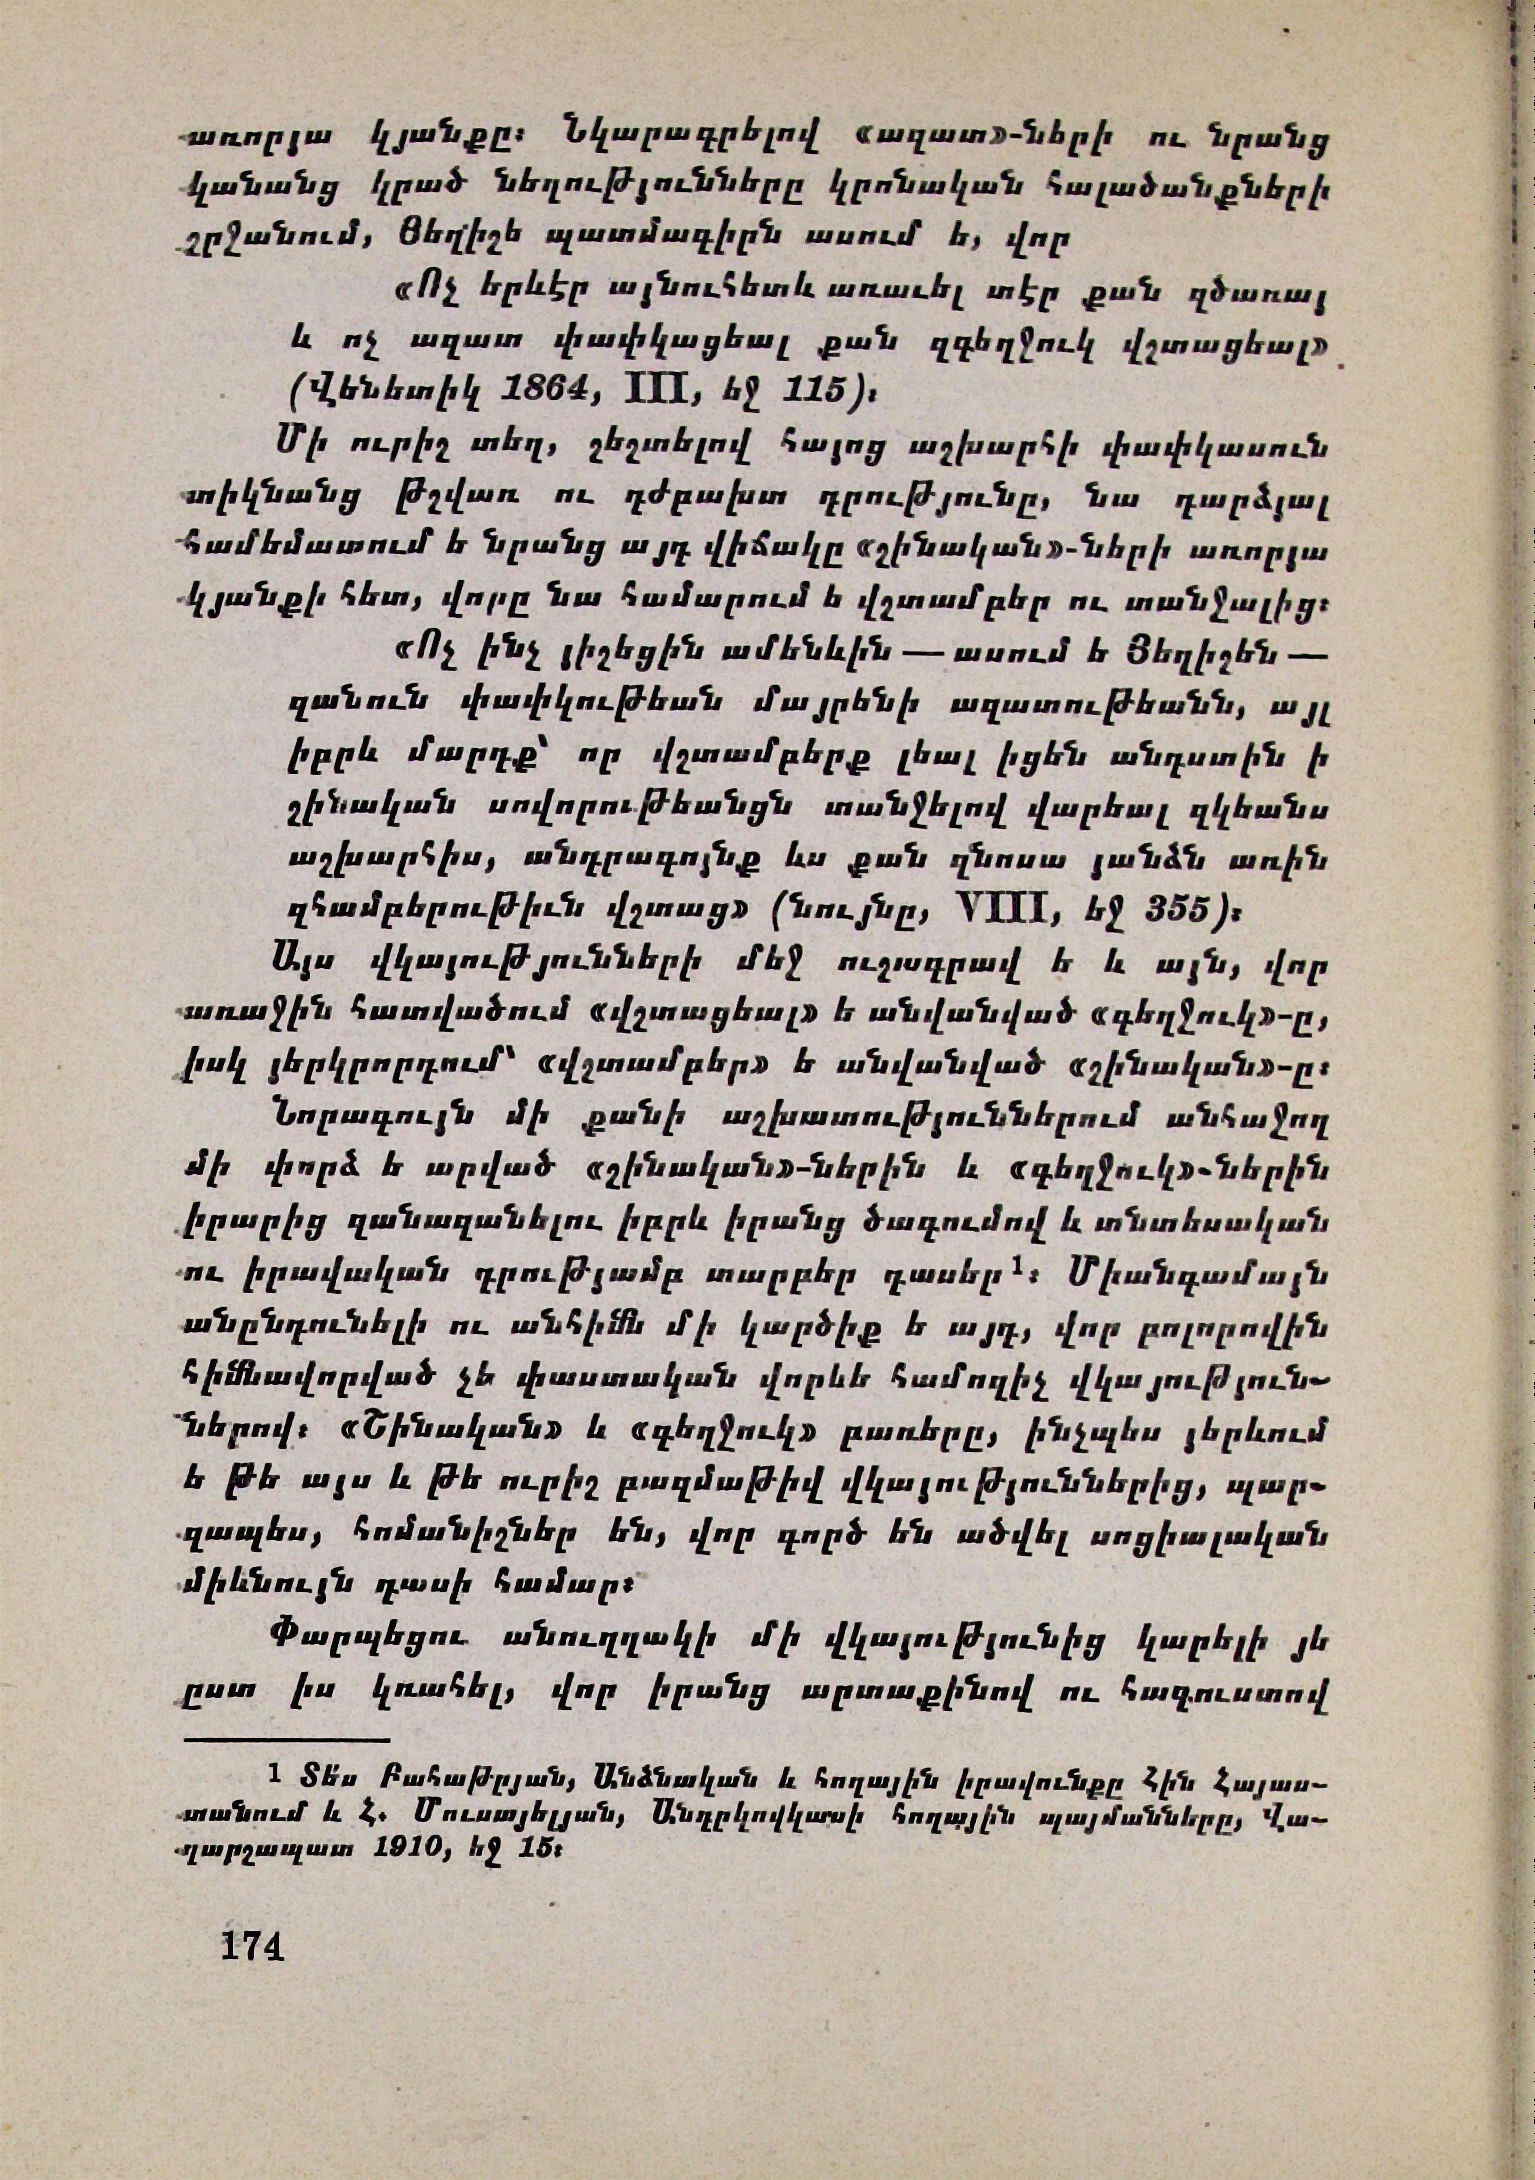 առորյա կյանքը։ Նկարագրելով «ազատ»-ների ու նրանց
կանանց կրած նեղությունները կրոնական հալածանքների
շրջանում, Յեղիշե պատմագիրն ասում ե, վոր
«Ոչ երևէր այնուհետև առաւել տէր քան զծառայ
և ոչ ազատ փափկացեալ քան զգեղջուկ վշտացեալ»
(Վենետիկ 1864, III, եջ 115)։
Մի ուրիշ տեղ, շեշտելով հայոց աշխարհի փափկասուն
տիկնանց թշվառ ու դժբախտ դրությունը, նա դարձյալ
համեմատում ե նրանց այդ վիճակը «շինական»-ների առորյա
կյանքի հետ, վորը նա համարում ե վշտամբեր ու տանջալից։
«Ոչ ինչ յիշեցին ամենևին — ասում ե Յեղիշեն —
զանուն փափկութեան մայրենի ազատութեանն, այլ
իբրև մարդք՝ որ վշտամբերք լեալ իցեն անդստին ի
շինական սովորութեանցն տանջելով վարեալ զկեանս
աշխարհիս, անդրագոյնք ևս քան զնոսա յանձն առին
զհամբերութիւն վշտաց» (նույնը, VIII, եջ 355)։
Այս վկայությունների մեջ ուշագրավ ե և այն, վոր
առաջին հատվածում «վշտացեալ» ե անվանված «գեղջուկ»-ը,
իսկ յերկրորդում՝ «վշտամբեր» ե անվանված «շինական»-ը։
Նորագույն մի քանի աշխատություններում անհաջող
մի փորձ ե արված «շինական»-ներին և «գեղջուկ»-ներին
իրարից զանազանելու իբրև իրանց ծագումով և տնտեսական
ու իրավական դրությամբ տարբեր դասեր¹։ Միանգամայն
անընդունելի ու անհիմն մի կարծիք ե այդ, վոր բոլորովին
հիմնավորված չե փաստական վորևե համոզիչ վկայություն-
ներով։ «Շինական» և «գեղջուկ» բառերը, ինչպես յերևում
ե թե այս և թե ուրիշ բազմաթիվ վկայություններից, պար-
զապես, հոմանիշներ են, վոր գործ են ածվել սոցիալական
միևնույն դասի համար։
Փարպեցու անուղղակի մի վկայությունից կարելի յե
ըստ իս կռահել, վոր իրանց արտաքինով ու հագուստով
1 Տե՛ս Բահաթըյան, Անձնական և հողային իրավունքը Հին Հայաս-
տանում և Հ. Մուսայելյան, Անդրկովկասի հողային պայմանները, Վա-
ղարշապատ 1910, եջ 15։
174